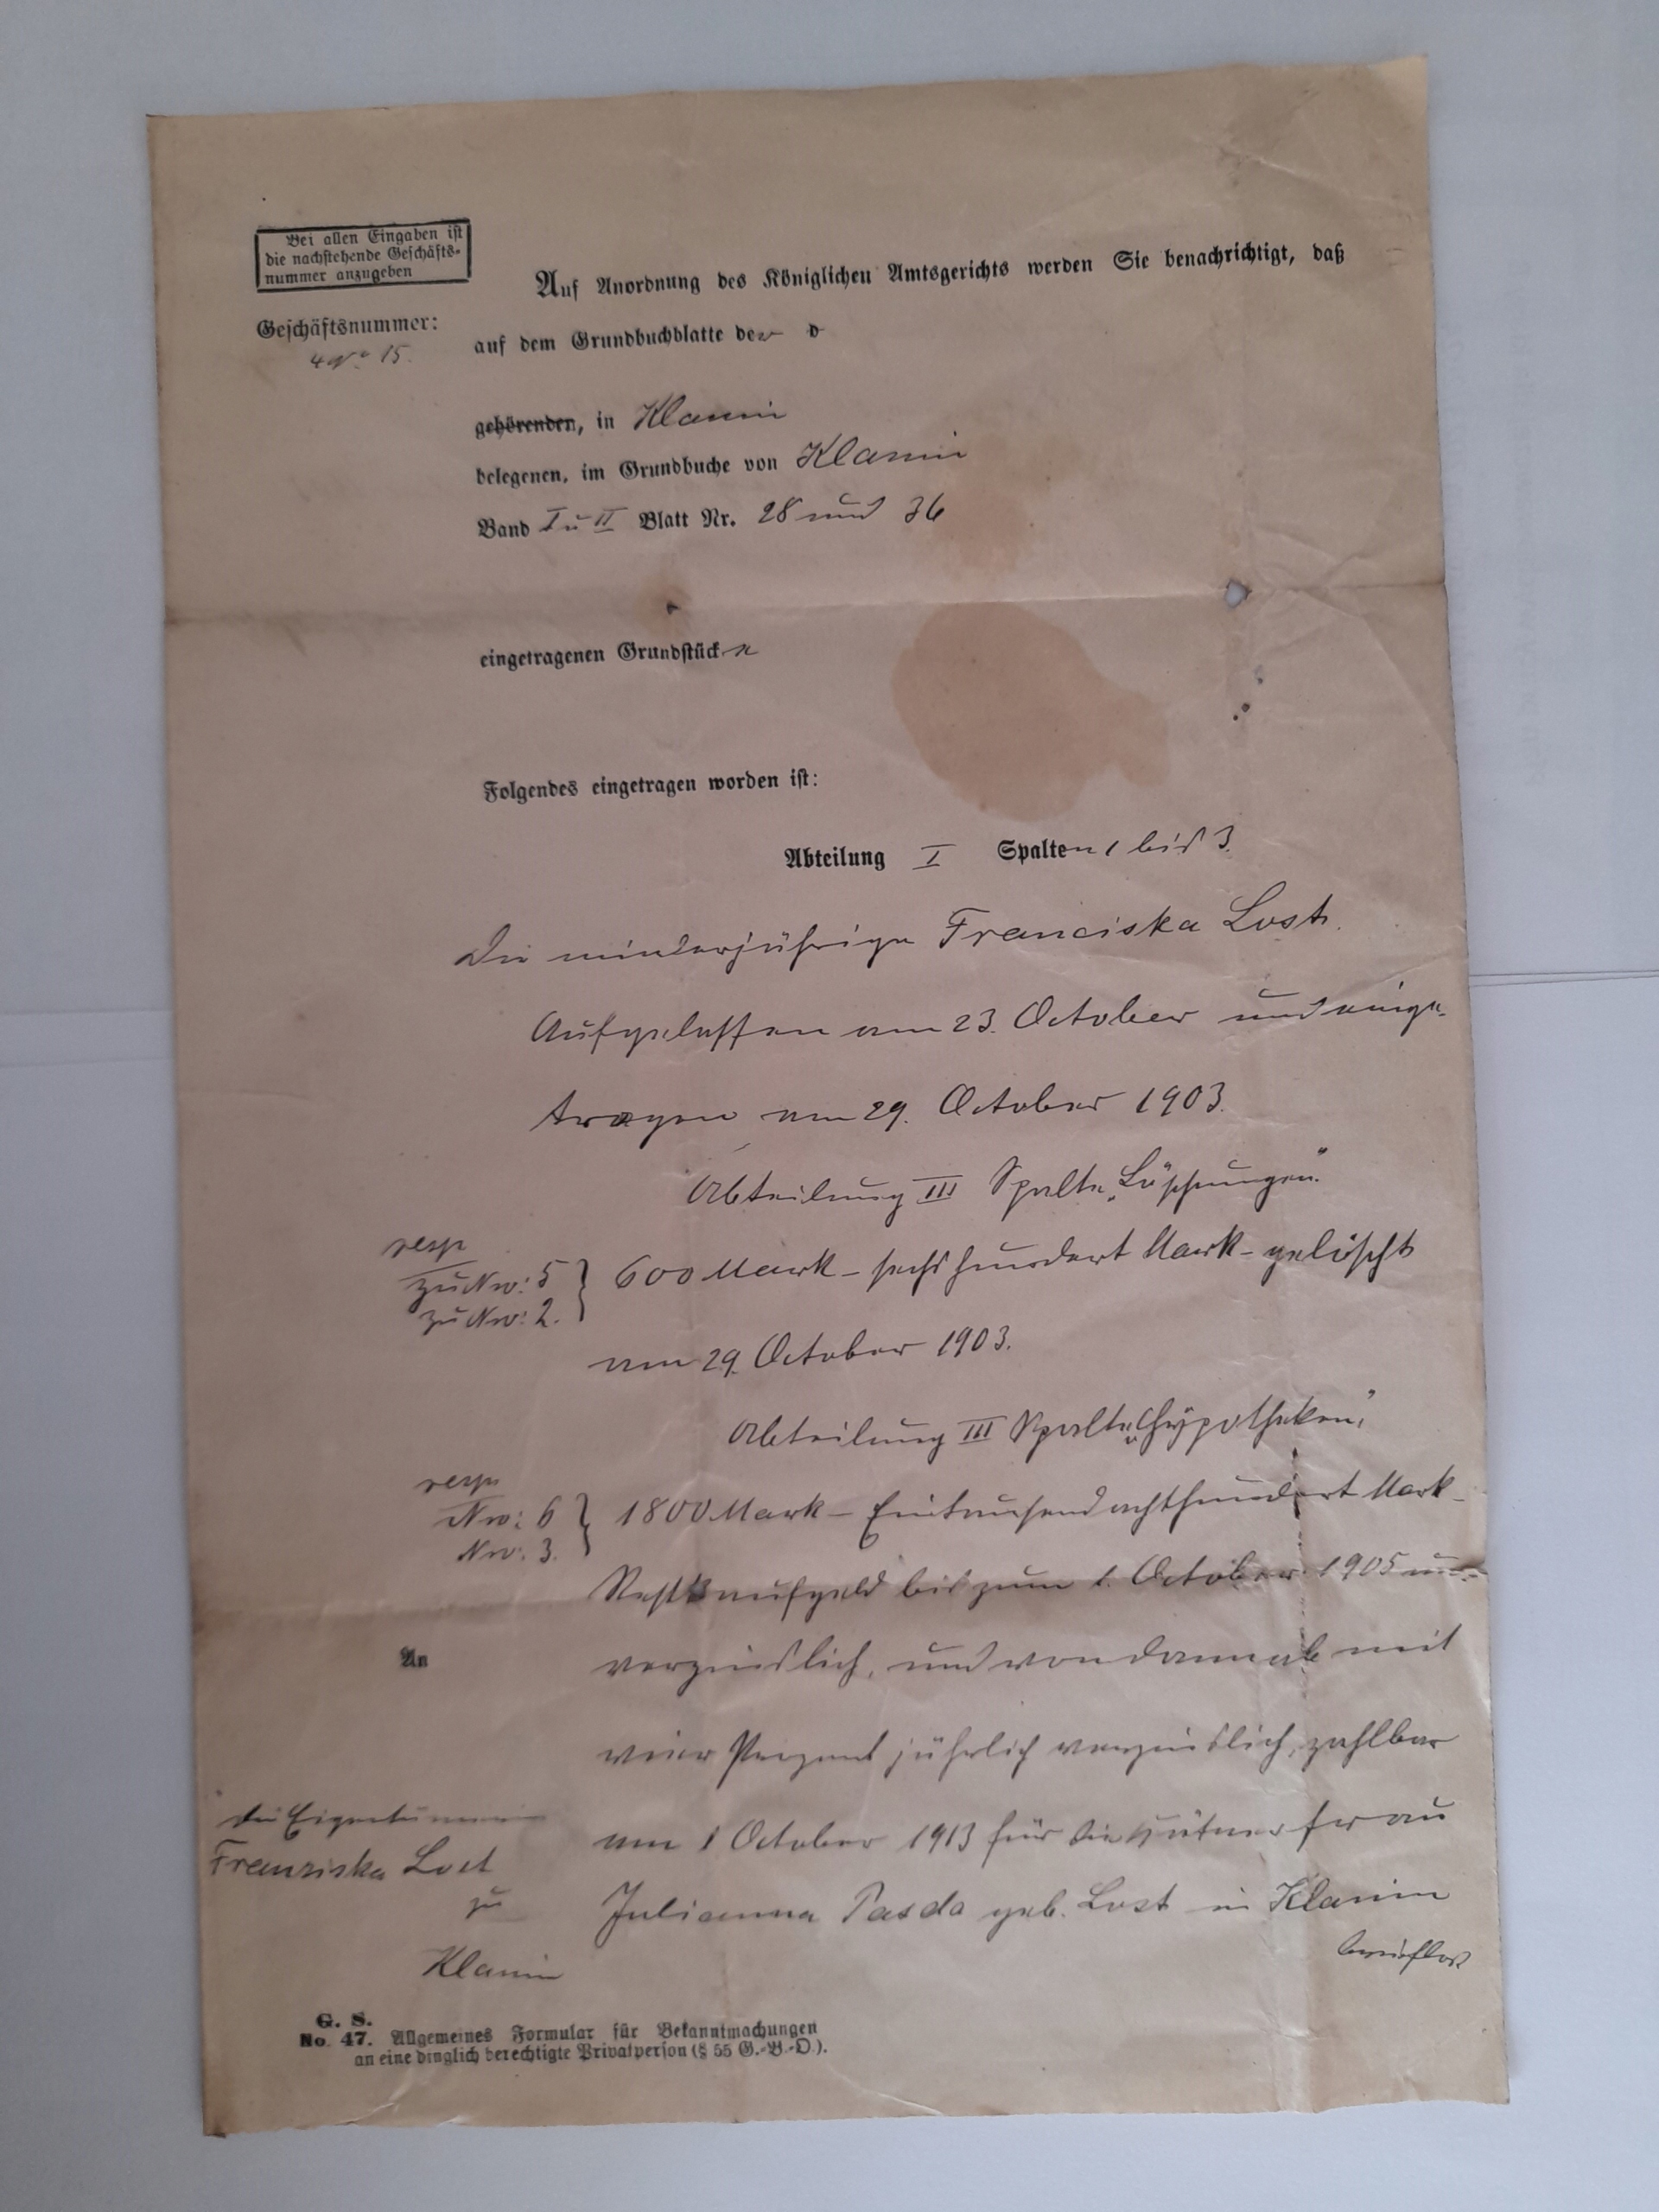 Bei allen Eingaben ist
die nachstehende Geschäfts-
nummer anzugeben
Geschäftsnummer:
15.
Auf Anordnung des Königlichen Amtsgerichts werden Sie benachrichtigt, daß
auf dem Grundbuchblatte der d
gehörenden, in Klanin
belegenen, im Grundbuche von Klanin
Band I u II Blatt Nr. 28 und 36
eingetragenen Grundstück
Folgendes eingetragen worden ist:
Abteilung I Spalten 1 bis 3.
Die minderjährige Franciska Lost.
Aufgelassen am 23. October und einge-
tragen am 29. October 1903.
Abteilung III Spalte „Löschungen"
resp
zu Nro: 5
zu Nro: 2.
600 Mark – sechshundert Mark – gelöscht
am 29. October 1903.
Abteilung III Spalte „Hypotheken"
resp
Nro: 6
Nro: 3.
1800 Mark – Eintausendachthundert Mark –
Restkaufgeld bis zum 1. October 1905 un-
verzinslich, und von dann ab mit
vier Prozent jährlich verzinslich, zahlbar
am 1 October 1913 für die frau
Julianna Pasda geb. Lost in Klanin
brieflos
An
die Eigentümerin
Franziska Lost
zu
Klanin
G. S.
No. 47. Allgemeines Formular für Bekanntmachungen
an eine dinglich berechtigte Privatperson (§ 55 G.-B.-O.).